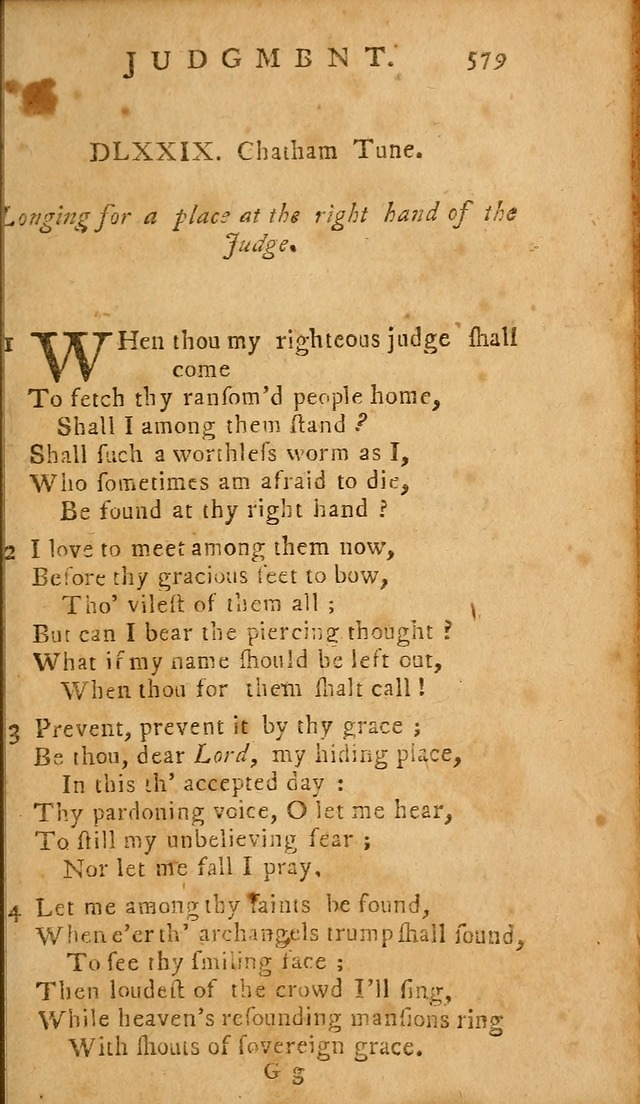 JUDGMENT. 579
DLXXIX. Chatham Tune.
Longing for a place at the right hand of the
Judge.
1 WHen thou my righteous judge ſhall
come
To fetch thy ranſom'd people home,
Shall I among them ſtand ?
Shall ſuch a worthleſs worm as I,
Who ſometimes am afraid to die,
Be found at thy right hand ?
2 I love to meet among them now,
Before thy gracious feet to bow,
Tho' vileſt of them all ;
But can I bear the piercing thought ?
What if my name ſhould be left out,
When thou for them ſhalt call !
3 Prevent, prevent it by thy grace ;
Be thou, dear Lord, my hiding place,
In this th' accepted day :
Thy pardoning voice, O let me hear,
To ſtill my unbelieving fear ;
Nor let me fall I pray.
4 Let me among thy ſaints be found,
Whene'er th' archangels trump ſhall ſound,
To ſee thy ſmiling face ;
Then loudeſt of the crowd I'll ſing,
While heaven's reſounding manſions ring
With ſhouts of ſovereign grace.
G g